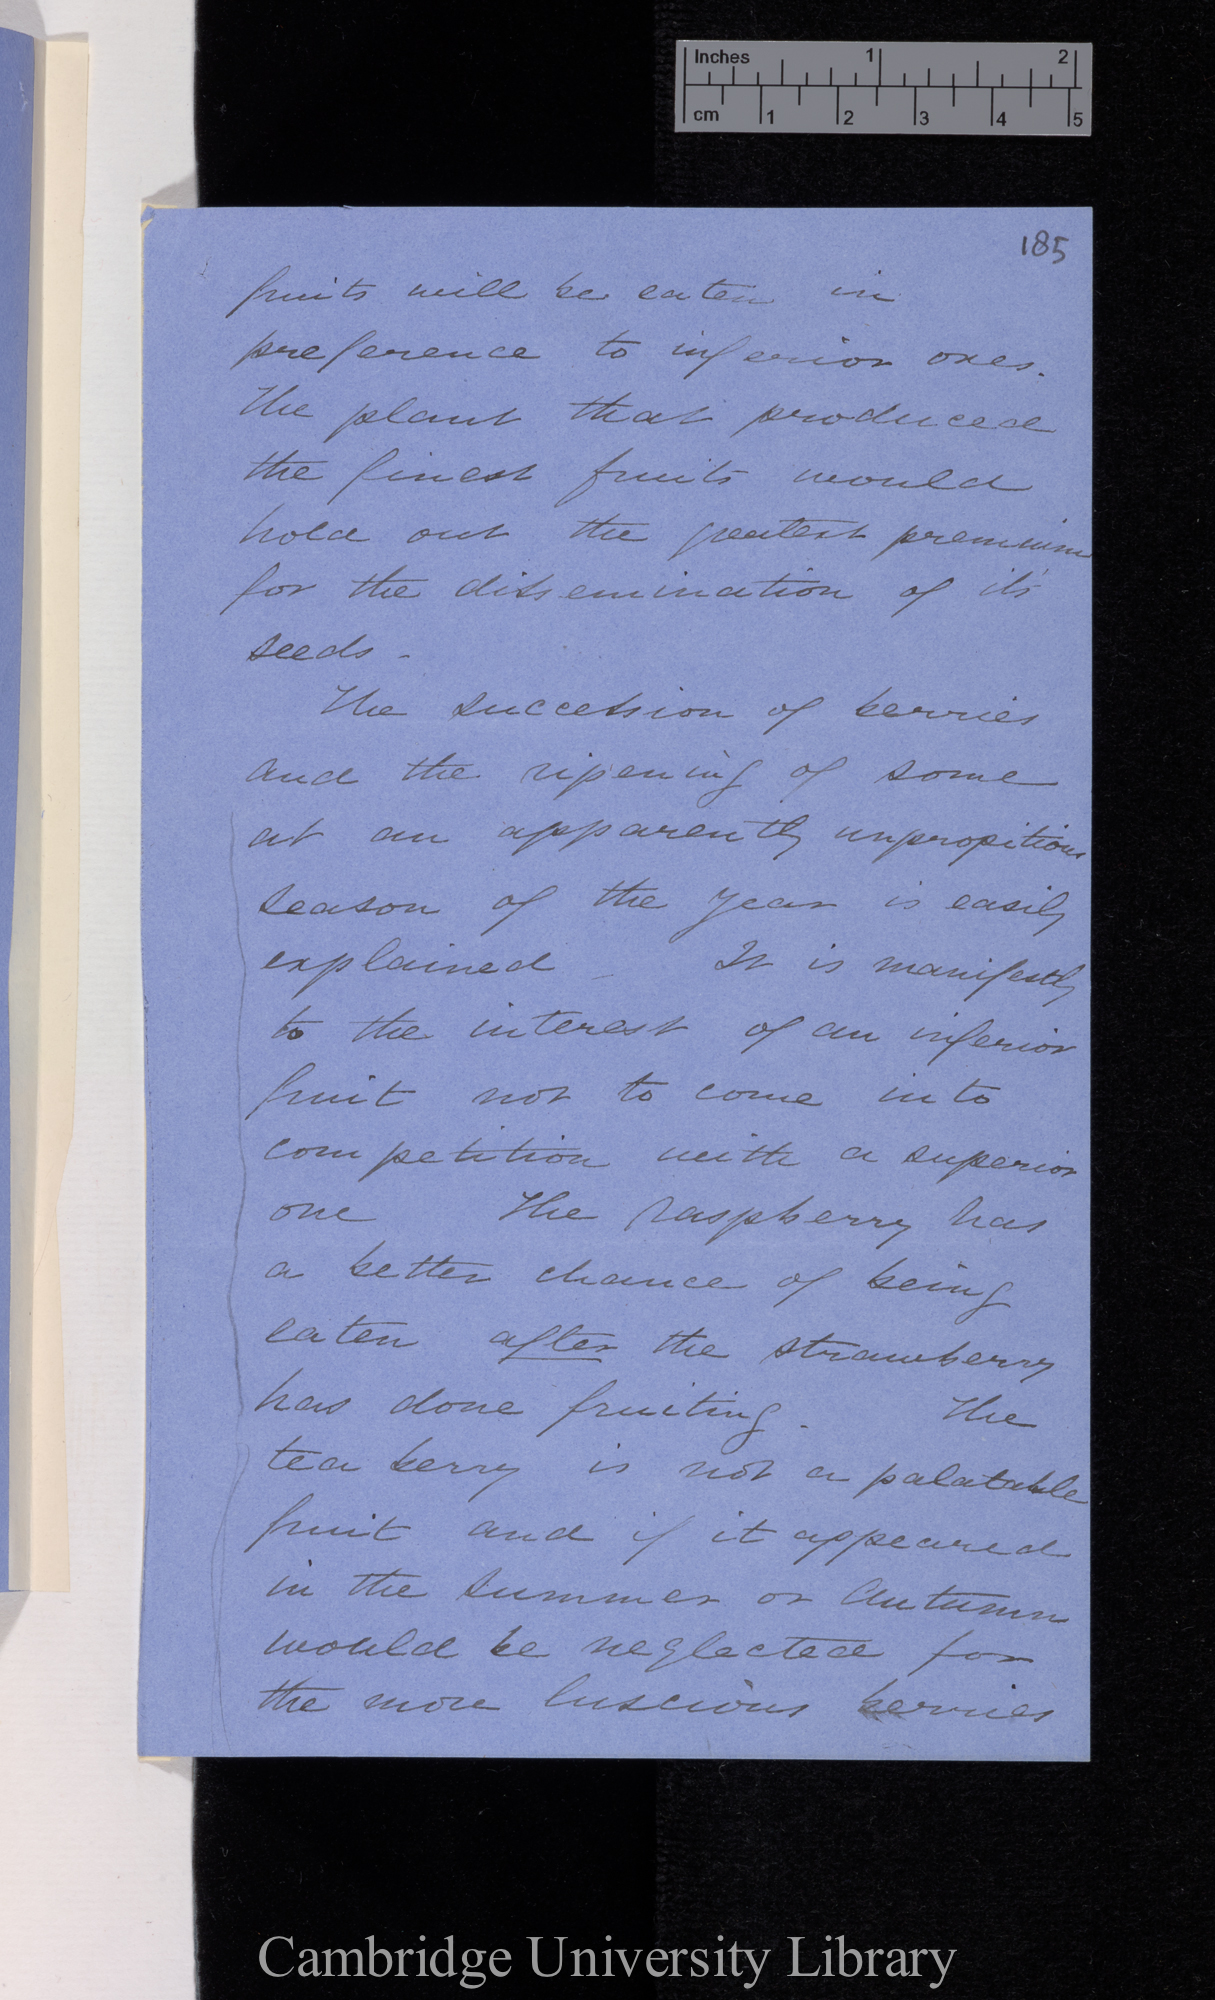 Inches 1 2
cm 1 2 3 4 5
185
fruits will be eaten in
preference to inferior ones.
The plant that produced
the finest fruits would
hold out the greatest premium
for the dissemination of its
seeds -
The succession of berries
and the ripening of some
at an apparently unpropitious
season of the year is easily
explained - It is manifestly
to the interest of an inferior
fruit not to come into
competition with a superior
one The raspberry has
a better chance of being
eaten after the strawberry
has done fruiting. The
tea berry is not a palatable
fruit and if it appeared
in the summer or Autumn
would be neglected for
the more luscious berries
Cambridge University Library